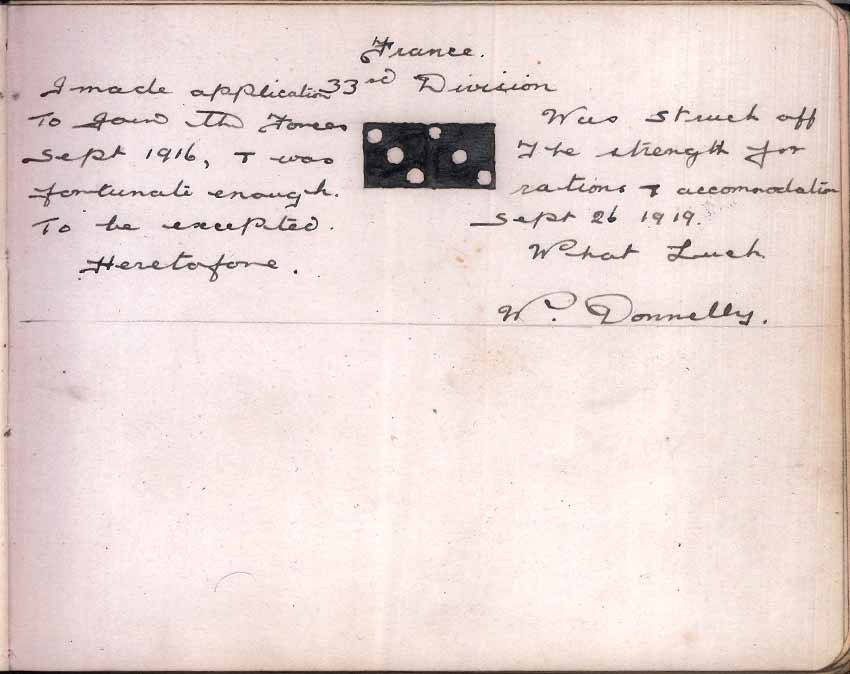 France.
33rd Division
I made application
To Join Th Forces
Sept 1916, & was
fortunate enough.
To be excepted.
Heretofore.
Was struck off
The strength for
rations & accomodation
Sept 26 1919.
What Luck
Wm. Donnelly.